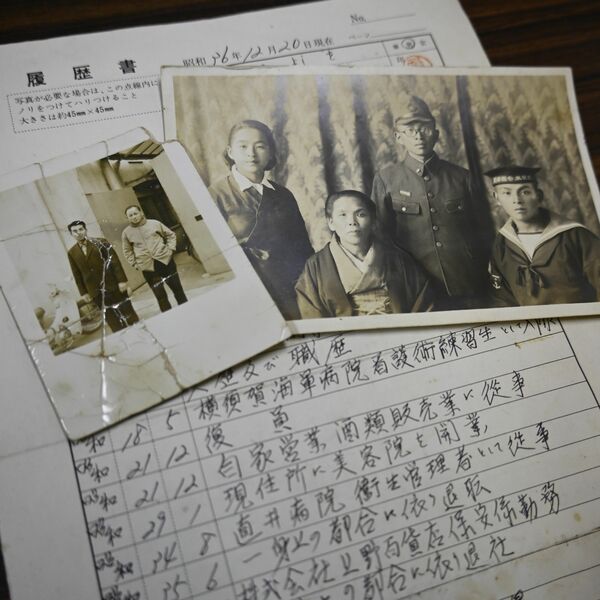 No.
履歴書
昭和 36年 12月 20日現在
ページ
写真が必要な場合は、この点線内に
ノリをつけてハリつけること
大きさは約45㎜×45㎜
歴及び職歴
横須賀海軍病院看護術練習生として入隊
和 18 5 復員
昭和 21 12 自家営業酒類販売業に従事
昭和 21 12 現住所に美容院を開業
昭和 29 1 直井病院 衛生管理者として従事
昭和 34 8 一身上の都合に依り退転
35 6 株式会社上野百貨店保安係勤務
の都合に依り退社